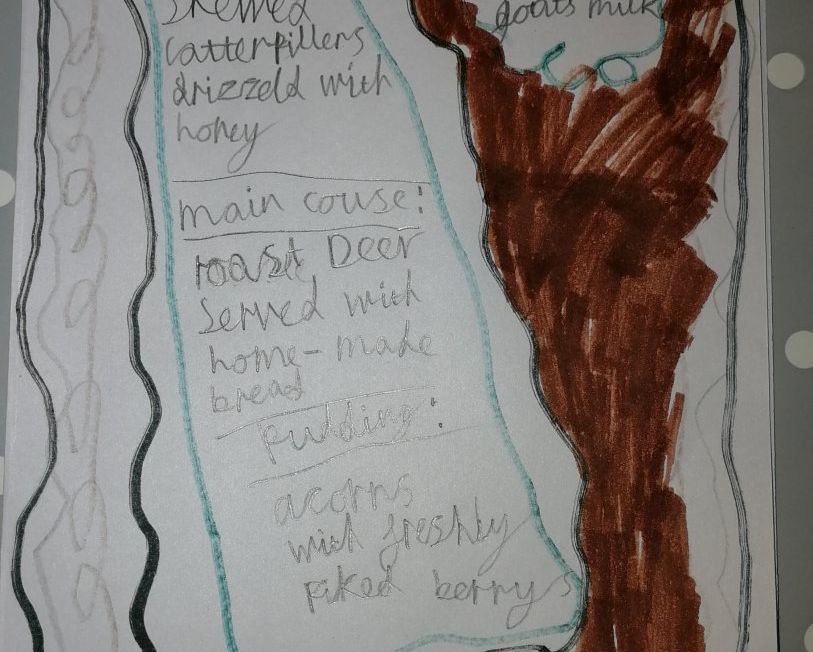 goats milk
skewed
catterpillers
drizzeld with
honey
main couse:
roast Deer
served with
home-made
bread
pudding:
acorns
with freshly
piked berrys